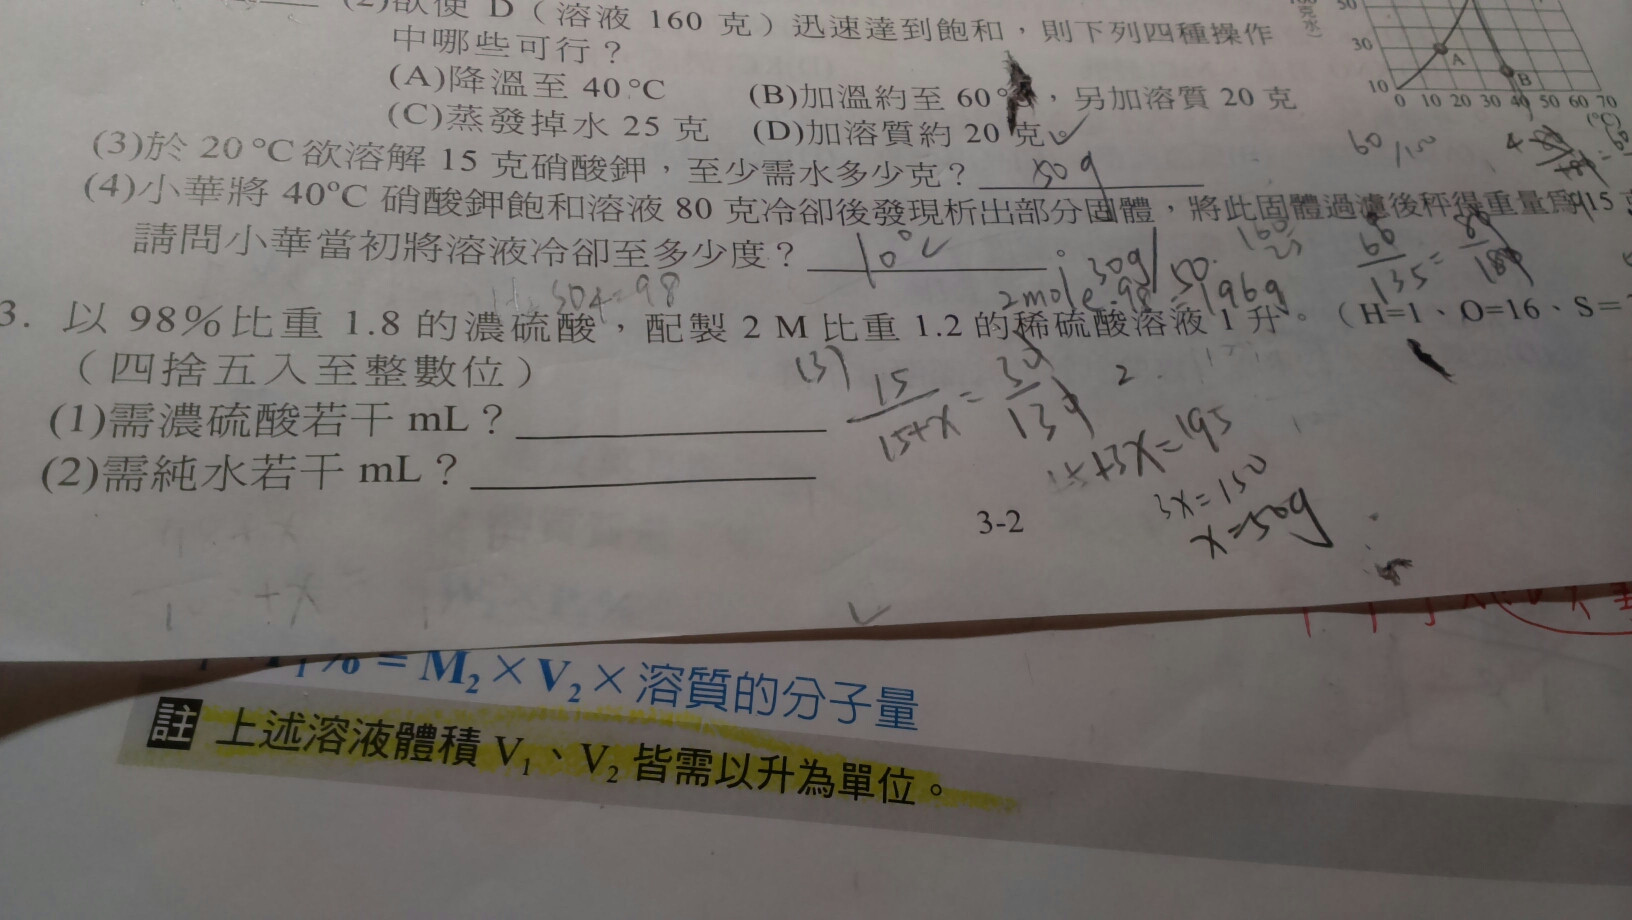 (2)欲使 D（溶液 160 克）迅速達到飽和，則下列四種操作
中哪些可行？
(A)降溫至 40°C (B)加溫約至 60°，另加溶質 20 克
(C)蒸發掉水 25 克 (D)加溶質約 20 克
(3)於 20°C 欲溶解 15 克硝酸鉀，至少需水多少克？ 50g
(4)小華將 40°C 硝酸鉀飽和溶液 80 克冷卻後發現析出部分固體，將此固體過濾後秤得重量為 15
請問小華當初將溶液冷卻至多少度？ 10°C 。
50
30
10
A
B
0 10 20 30 40 50 60 70
(°C)
60/100
30g/50.
160
25
60/135 =
2mole·98=196g
3. 以 98%比重 1.8 的濃硫酸，配製 2 M 比重 1.2 的稀硫酸溶液 1 升。（H=1、O=16、S=
（四捨五入至整數位）
(1)需濃硫酸若干 mL？
(2)需純水若干 mL？
(3) 15/15+x = 30/130
+3x=195
3x=150
x=50g
3-2
% = M₂×V₂×溶質的分子量
註 上述溶液體積 V₁、V₂ 皆需以升為單位。